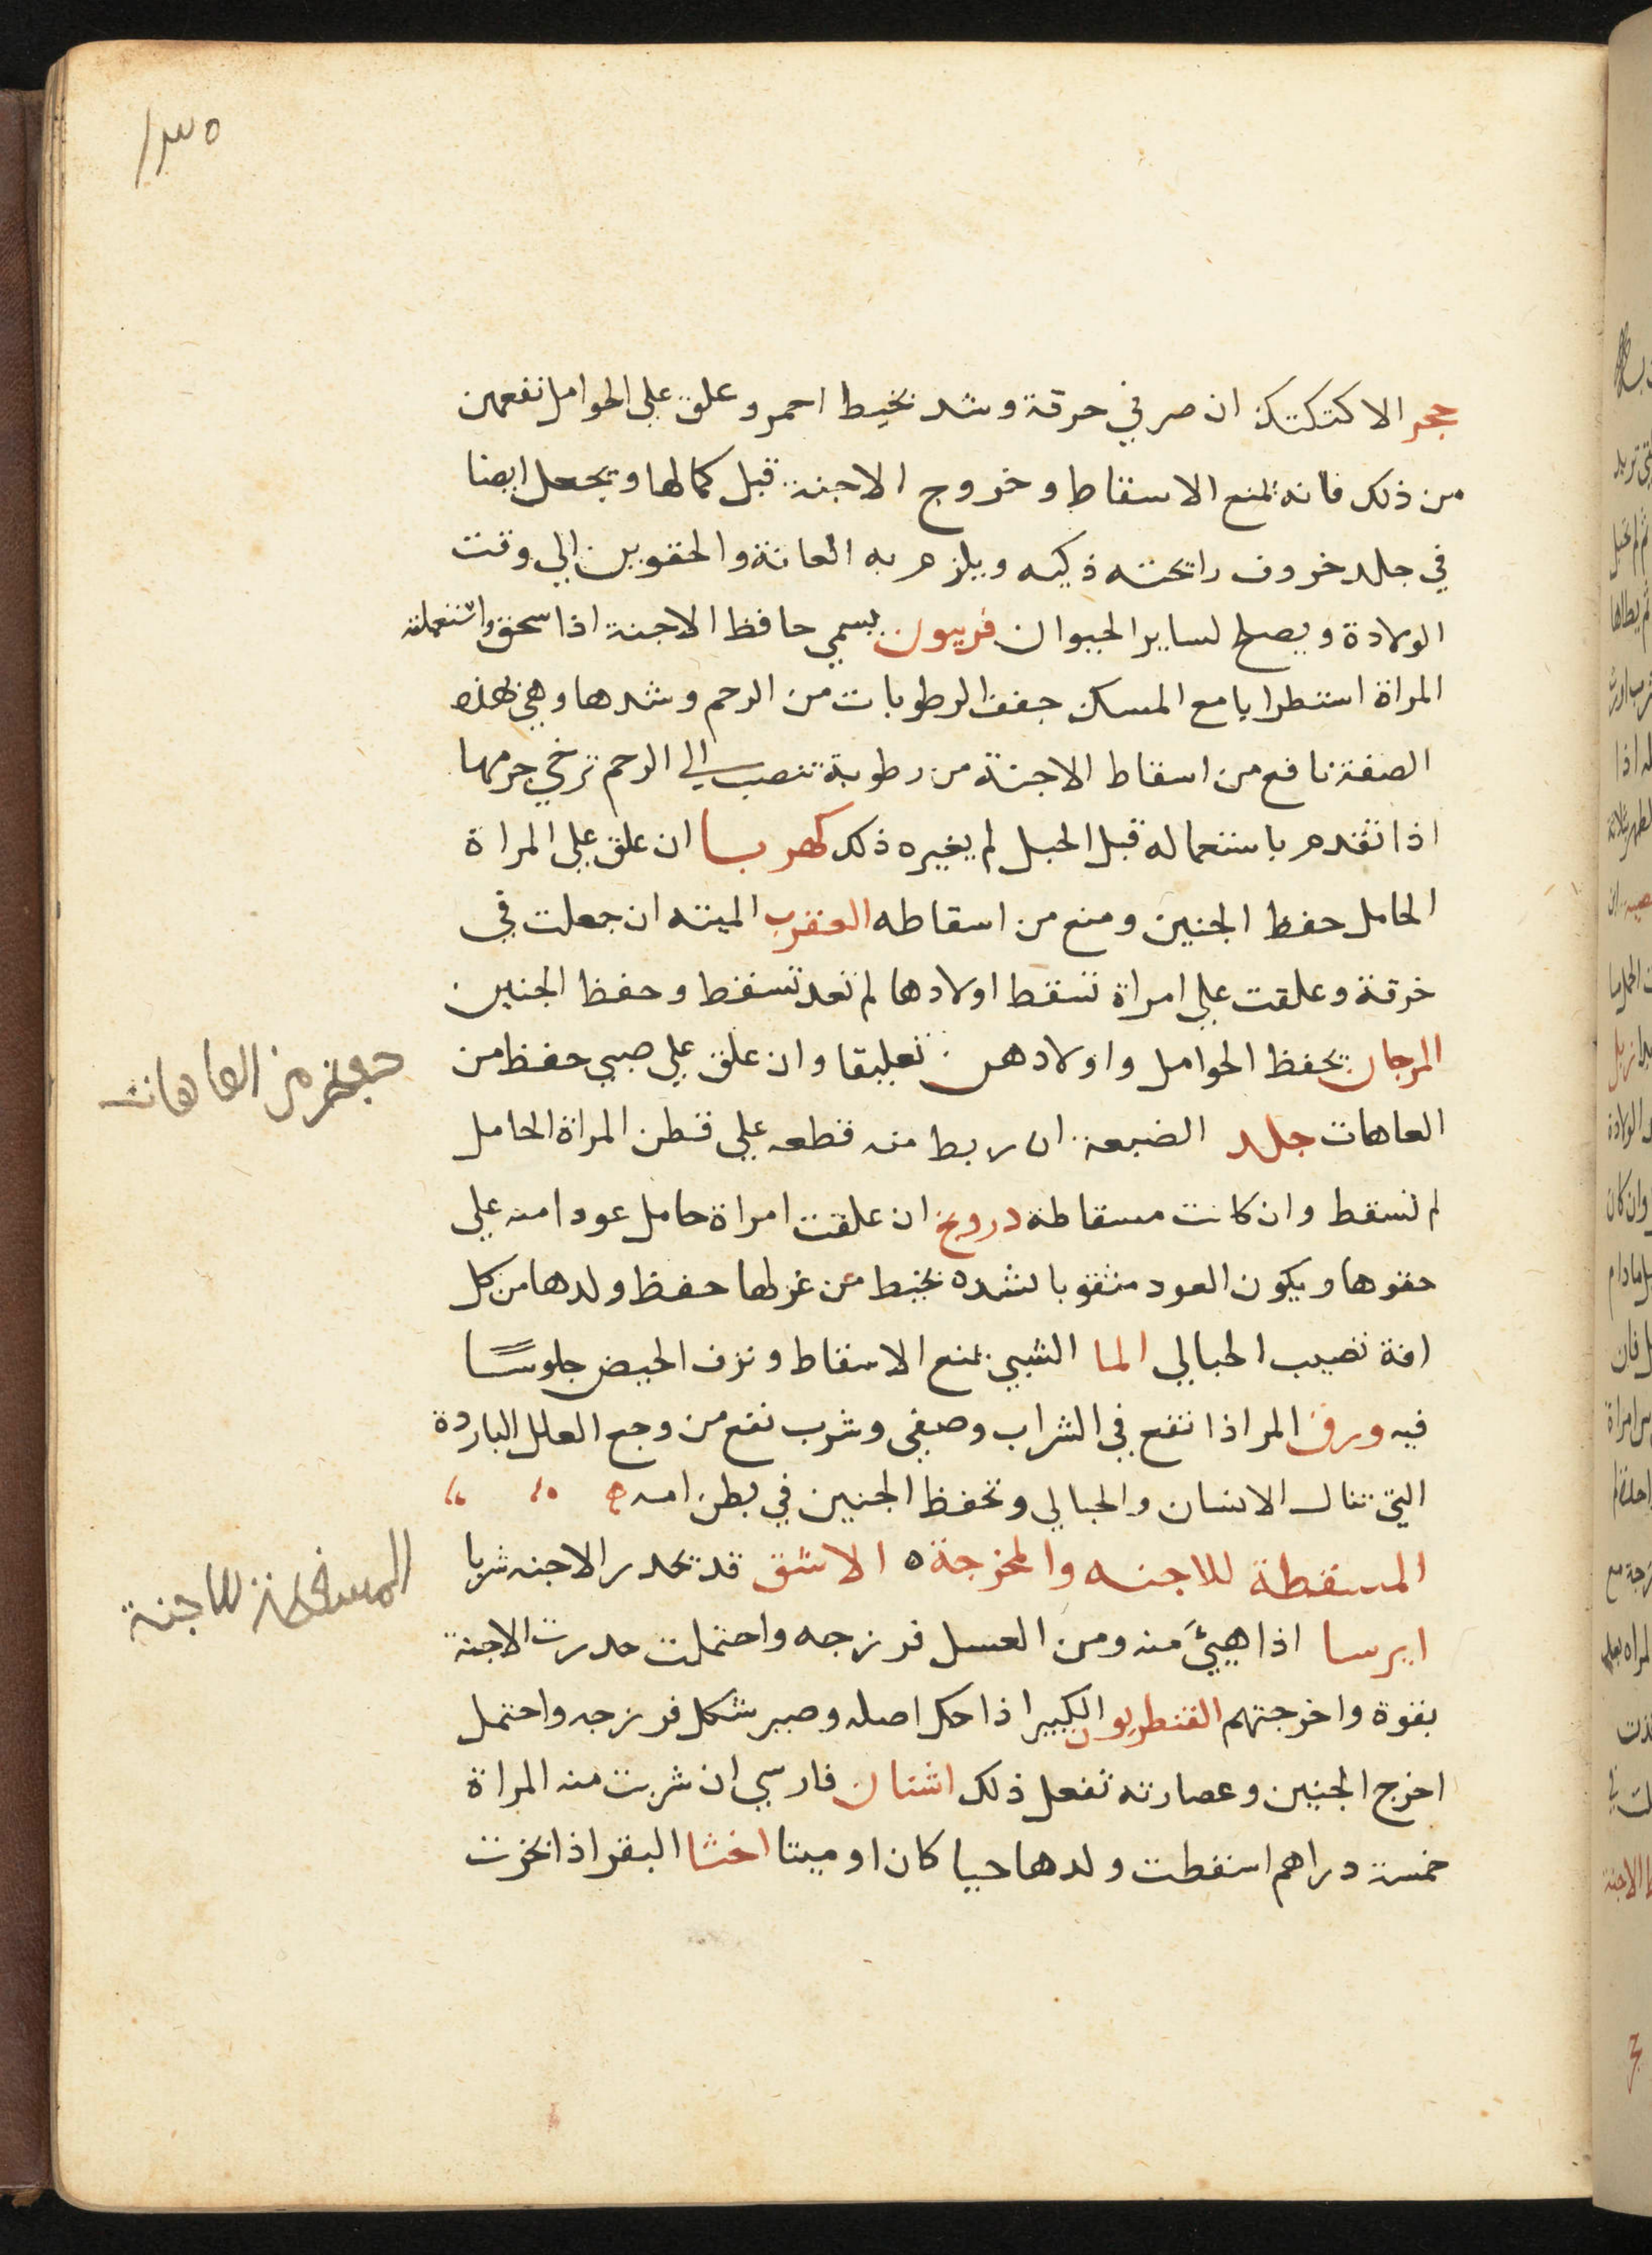 ١٣٥
حجر الاكتكتكت ان صر في خرقة وشد بخيط احمر وعلق علي الحوامل نفعهن
من ذلك فانه يمنع الاسقاط وخروج الاجنة قبل كمالها ويجعل ايضا
في جلد خروف رايحته ذكيه ويلزم به العانة والحقوين الي وقت
الولادة ويصلح لساير الحيوان فربيون يسمي حافظ الاجنة اذا سحق واستعملته
المراة استطرايا مع المسك جفف الرطوبات من الرحم وشدها وهي بهذه
الصفة نافع من اسقاط الاجنة من رطوبة تنصب الي الرحم ترخي جرمها
اذا تقدم باستعماله قبل الحبل لم يغيره ذلك كهربا ان علق علي المراة
الحامل حفظ الجنين ومنع من اسقاطه العقرب الميته ان جعلت في
خرقة وعلقت علي امراة تسقط اولادها لم تعد تسقط وحفظ الجنين
المرجان يحفظ الحوامل واولادهن تعليقا وان علق علي صبي حفظ من
العاهات جلد الضبعة ان ربط منه قطعه علي قطن المراة الحامل
لم تسقط وان كانت مسقاطة درونج ان علقت امراة حامل عودا منه علي
حقوها ويكون العود مثقوبا لشده بخيط من غزلها حفظ ولدها من كل
افة تصيب الحبالي الما الشبي يمنع الاسقاط ونزف الحيض جلوسًا
فيه ورق المر اذا نقع في الشراب وصفي وشرب نفع من وجع العلل الباردة
التي تنال الانسان والحبالي وتحفظ الجنين في بطن امه
المسقطة للاجنه والمخرجة ه الاشق قد تحدر الاجنه شربا
ايرسا اذا هيئَ منه ومن العسل فرزجه واحتملت حدرت الاجنة
بقوة واخرجتهم القنطريون الكبير اذا حك اصله وصير شكل فرزجه واحتمل
اخرج الجنين وعصارته تفعل ذلك اشنان فارسي ان شربت منه المراة
خمسة دراهم اسقطت ولدها حيا كان او ميتا اخثا البقر اذا بخرت
من العاهات
المسقطة للاجنة